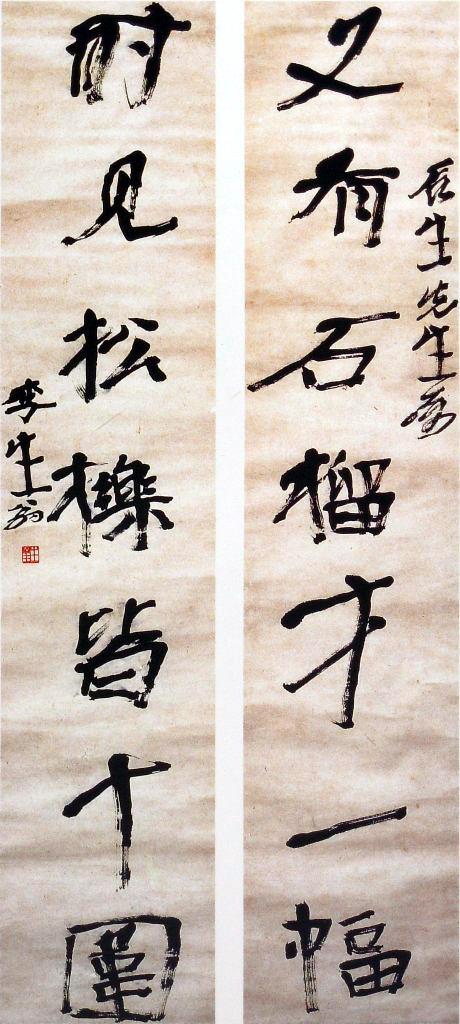 生先生
又有石榴才一幅
时见松櫟皆十圍
李生翁